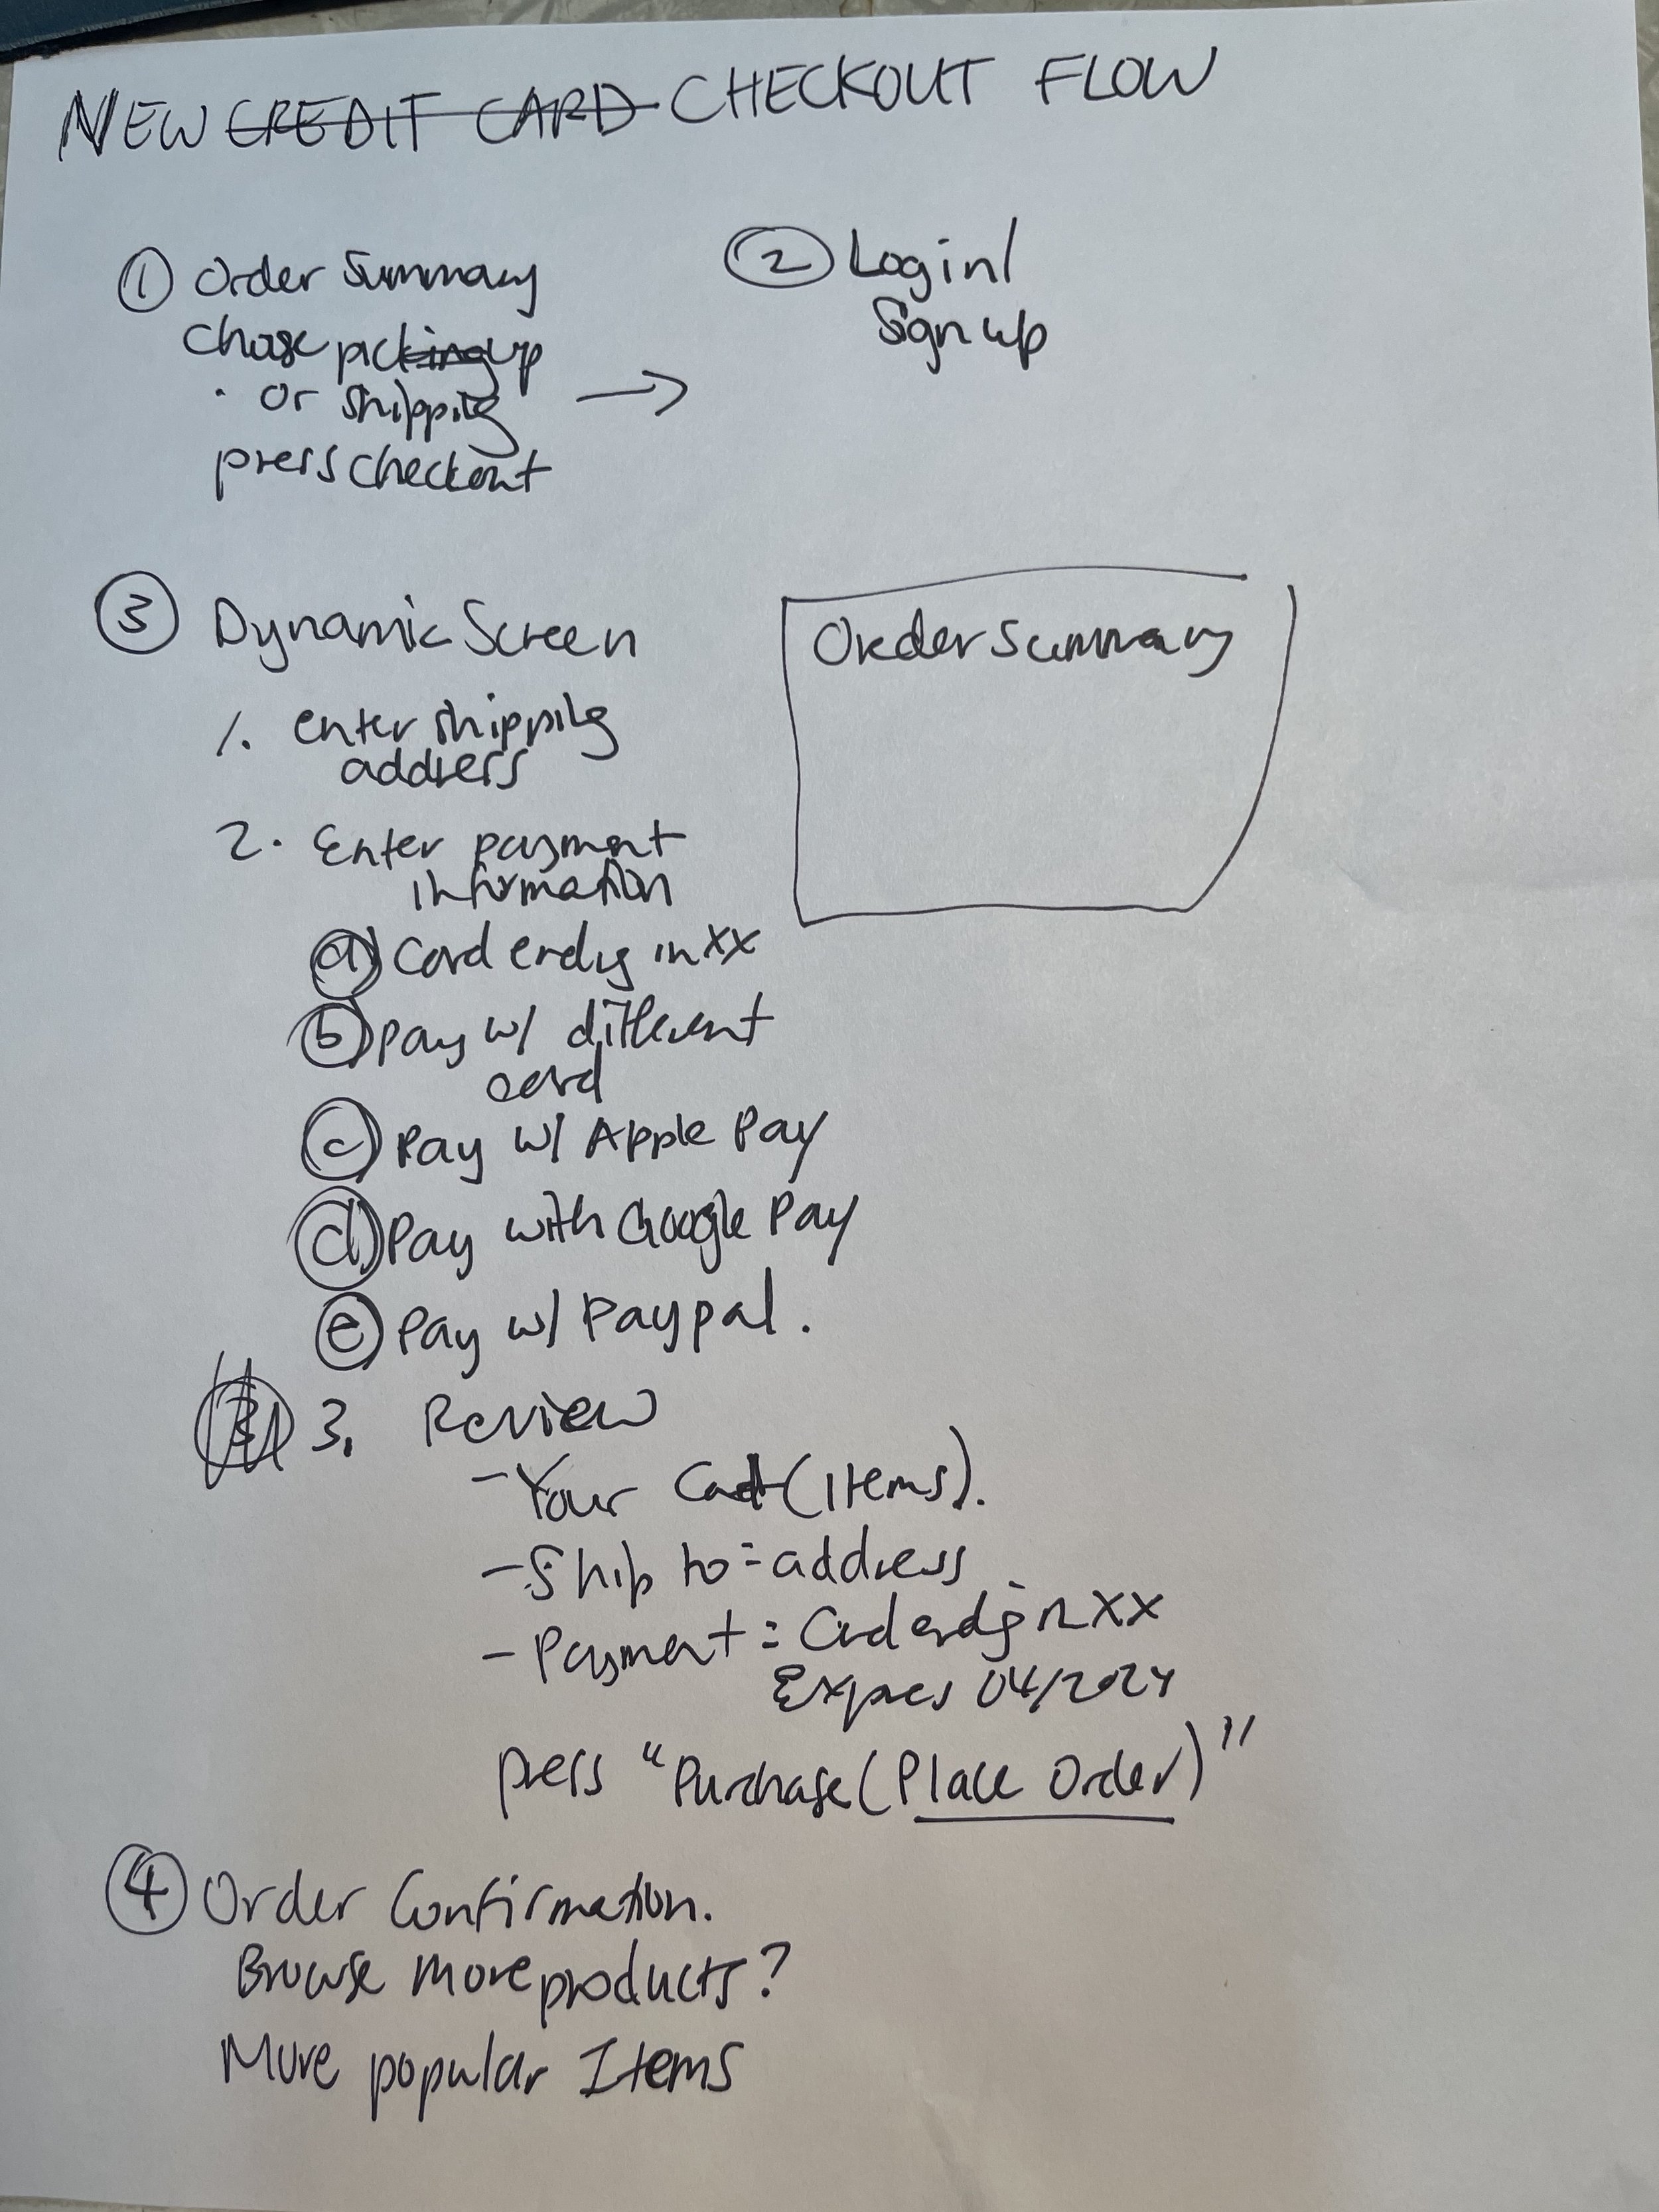 NEW CREDIT CARD CHECKOUT FLOW
① Order Summary
chose picking up
. or shipping
press checkout
→
② Login/
Sign up
③ Dynamic Screen
1. enter shipping
address
2. Enter payment
information
ⓐ Card ending in XX
ⓑ Pay w/ different
card
ⓒ Pay w/ Apple Pay
ⓓ Pay with Google Pay
ⓔ Pay w/ Paypal.
3. Review
- Your Cart (Items).
- Ship to: address
- Payment: Card ending in XX
Expires 04/2024
press "Purchase (Place Order)"
Order Summary
④ Order Confirmation.
Browse more products?
More popular Items